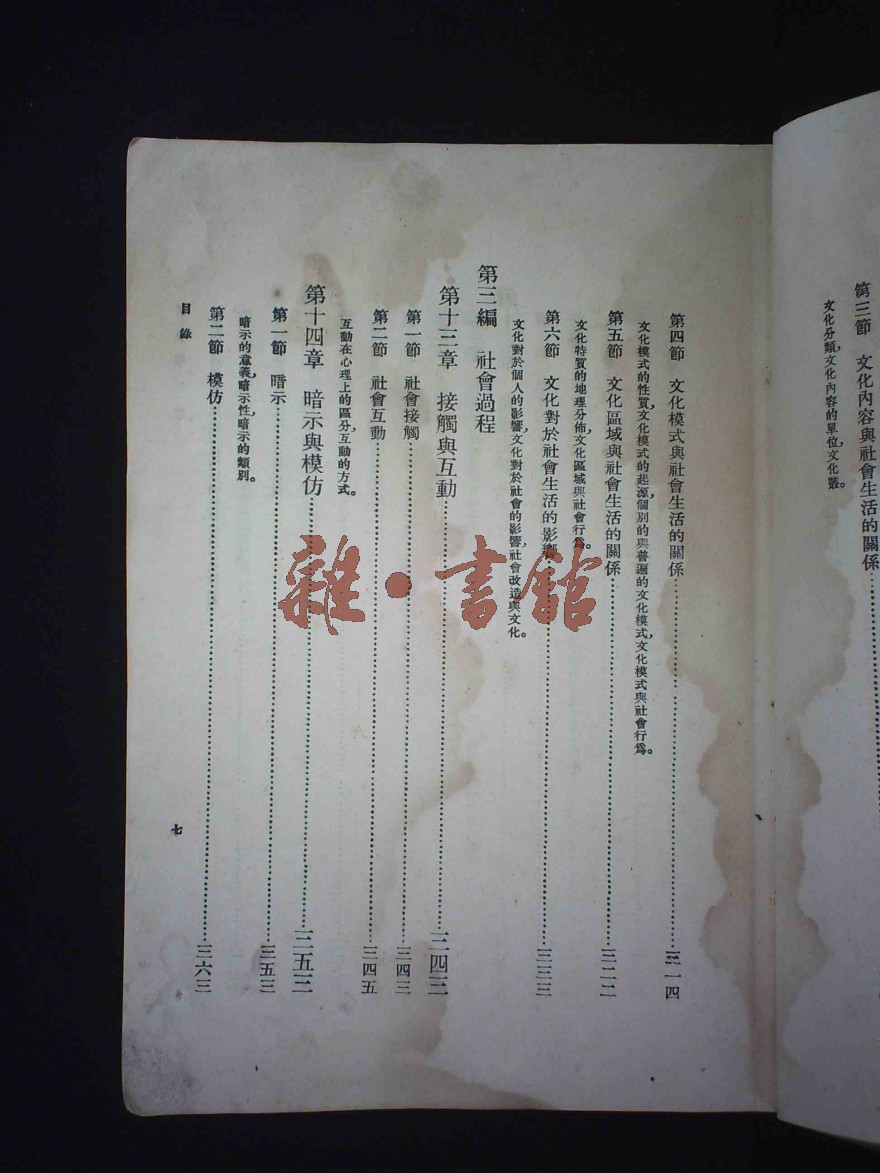 第三節　文化內容與社會生活的關係
文化分類，文化內容的單位，文化叢。
第四節　文化模式與社會生活的關係…………三一四
文化模式的性質，文化模式的起源，個別的與普遍的文化模式，文化模式與社會行爲。
第五節　文化區域與社會生活的關係…………三二二
文化特質的地理分佈，文化區域與社會行爲。
第六節　文化對於社會生活的影響…………三三三
文化對於個人的影響，文化對於社會的影響，社會改造與文化。
第三編　社會過程
第十三章　接觸與互動…………三四三
第一節　社會接觸…………三四三
第二節　社會互動…………三四五
互動在心理上的區分，互動的方式。
第十四章　暗示與模仿…………三五三
第一節　暗示…………三五三
暗示的意義，暗示性，暗示的類別。
第二節　模仿…………三六三
目錄
七
雜·書館